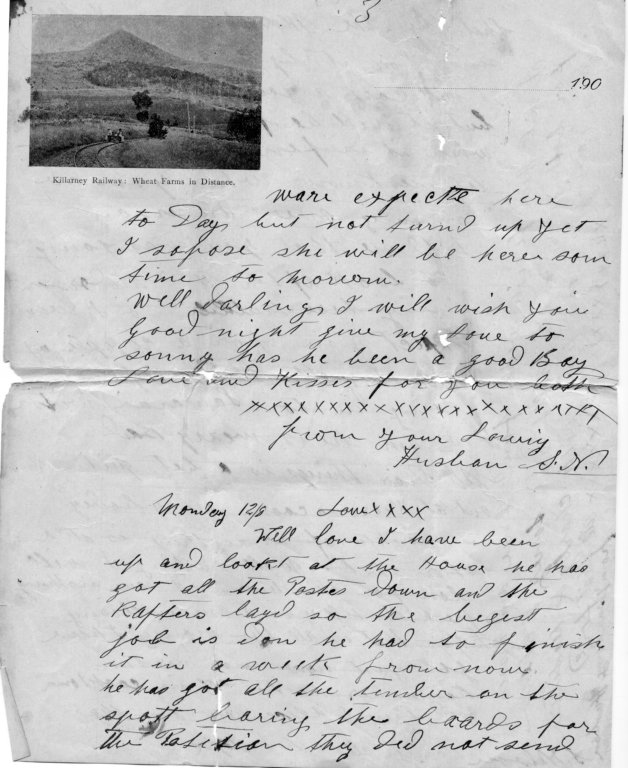 3
190
Killarney Railway: Wheat Farms in Distance.
ware expecte here
to Day but not turnd up yet
I sopose she will be here som
time to morrow.
Well Darlings I will wish you
Good night give my love to
sonny has he been a good Boy
Love and Kisses for you both
xxxxxxxxxxxxxxxxxxxxxx
from your Loving
Husban S.N.
Monday 12/6 Love xxxx
Well love I have been
up and lookt at the House he has
got all the Postes Down and the
Rafters layd so the begest
job is don he had to finish
it in a week from now
he has got all the timber on the
spott baring the boards for
the Patition they Ded not send